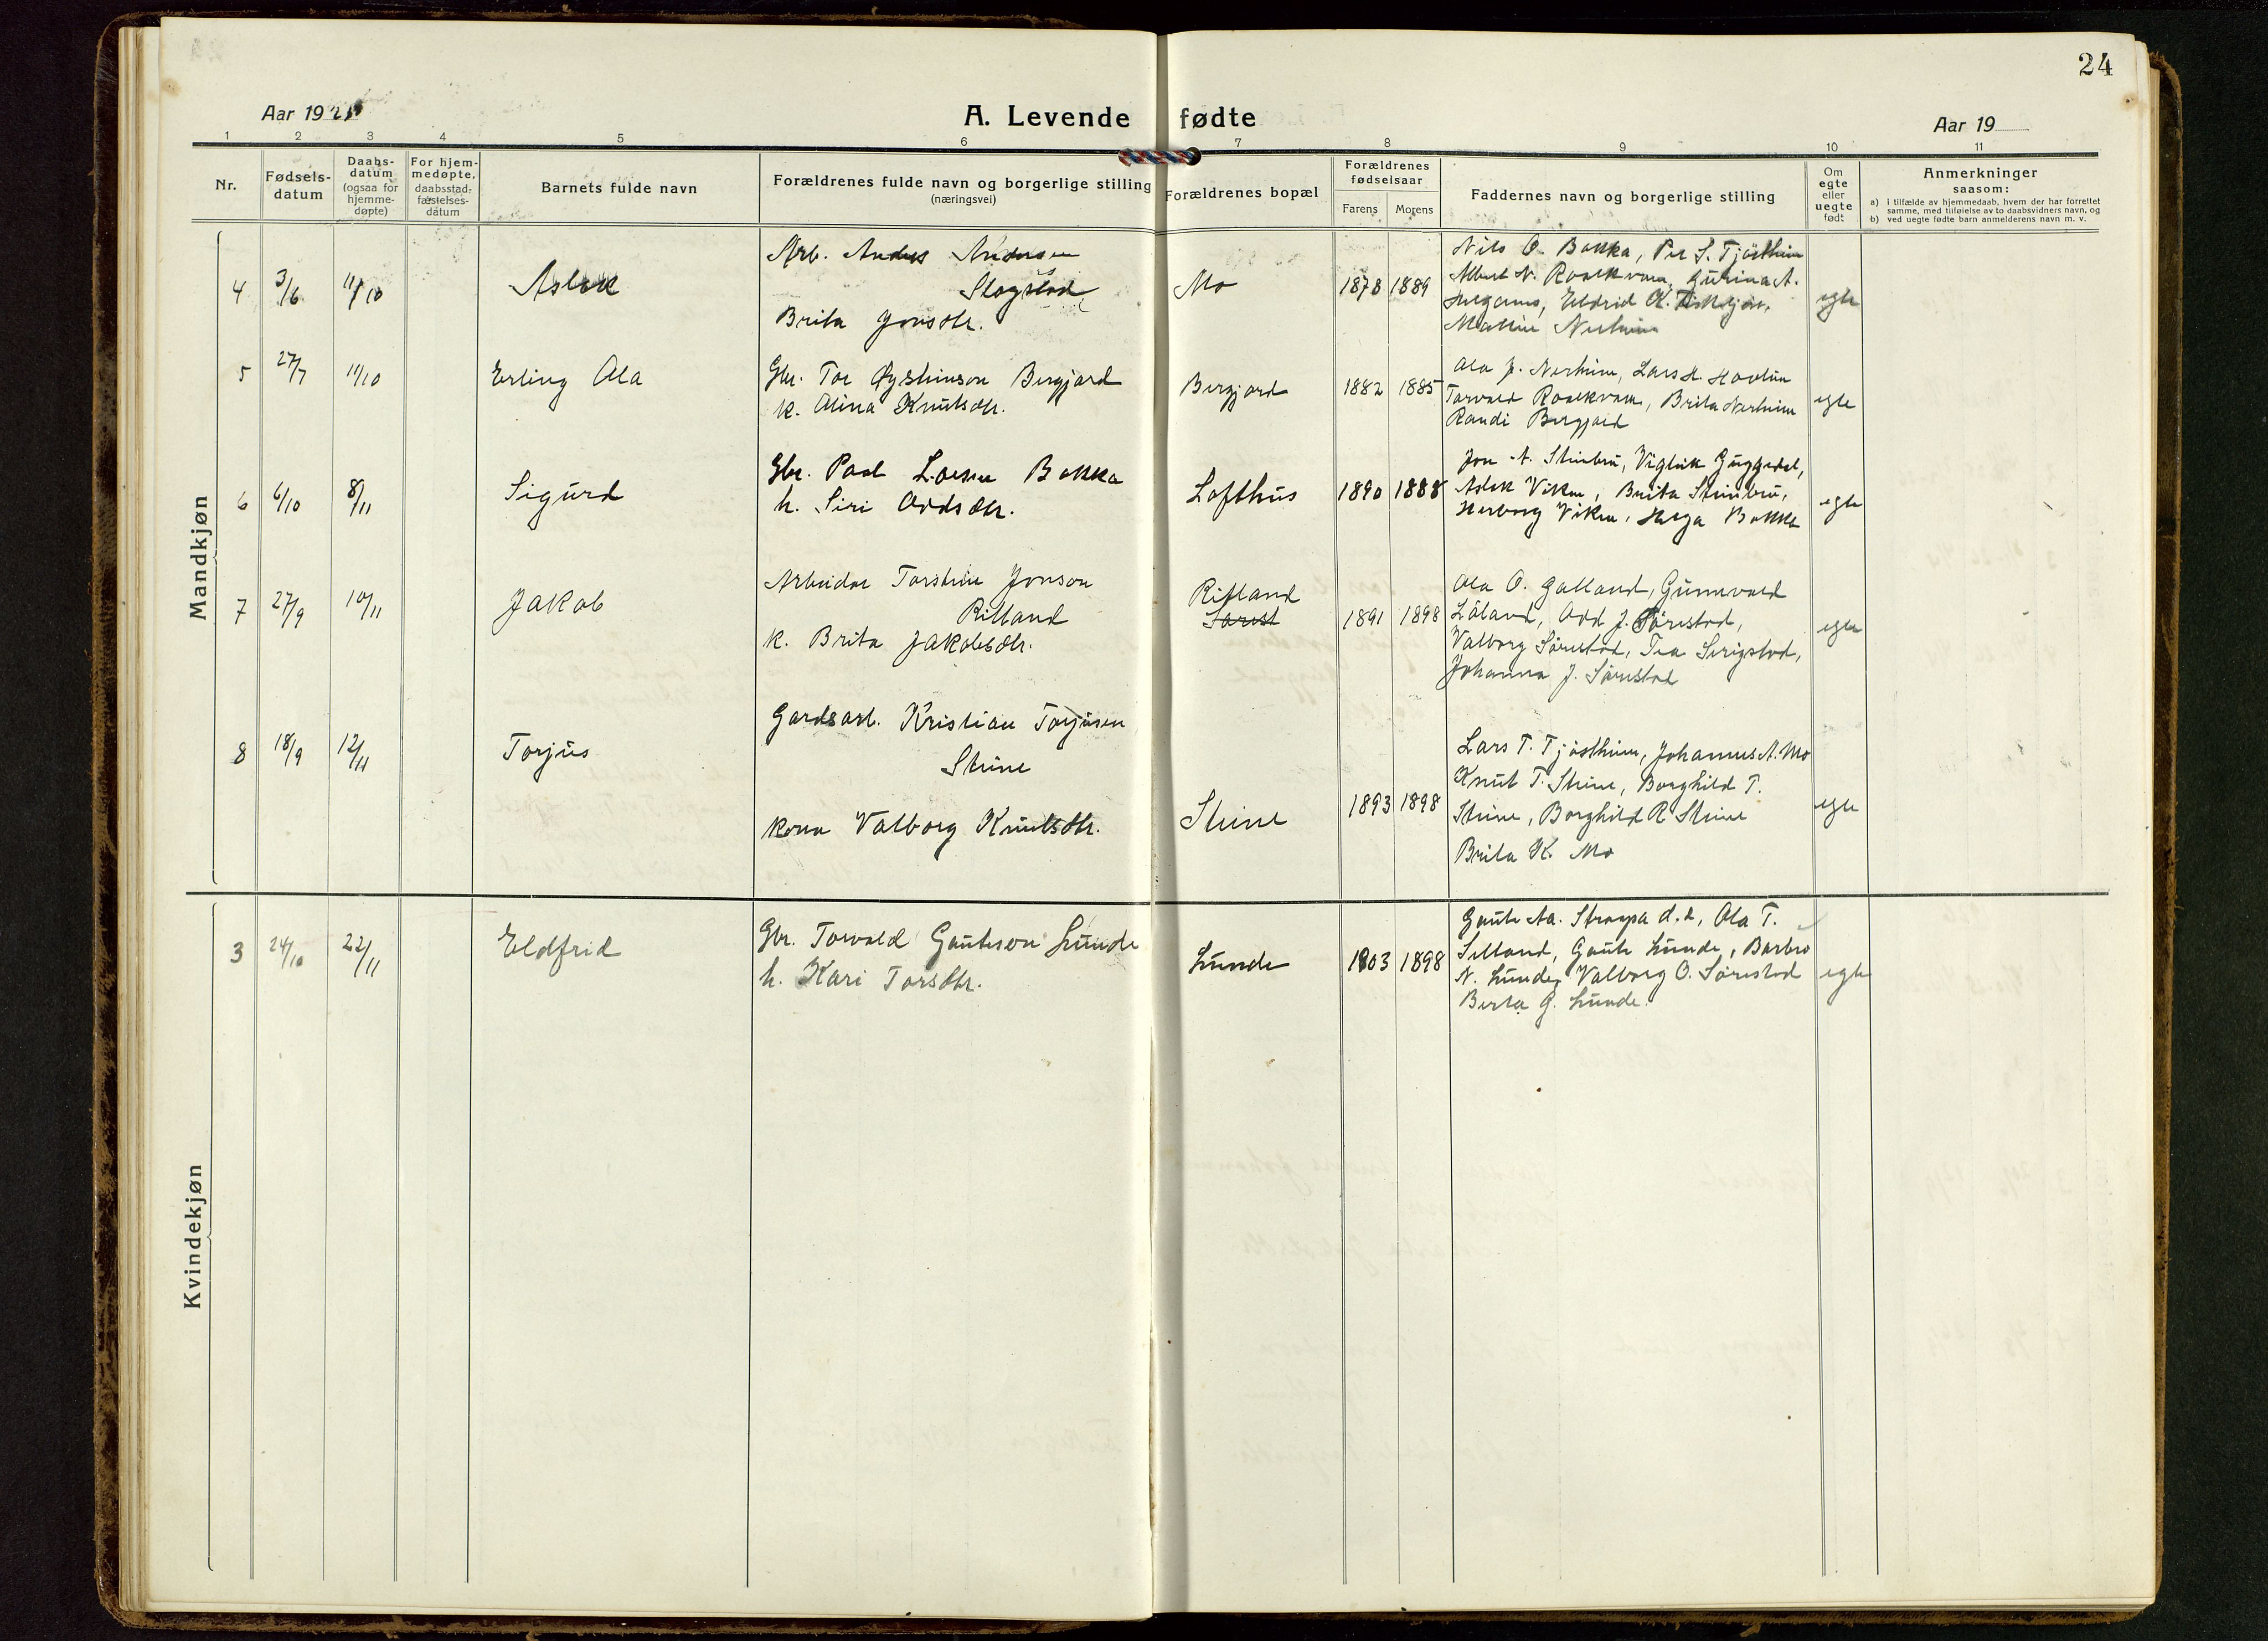 24
Aar 19
A. Levende fødte
Aar 19
1 2 3 4 5 6 7 8 9 10 11
Nr.
Fødsels-
datum
Daabs-
datum
(ogsaa for
hjemme-
døpte)
For hjem-
medøpte,
daabsstad-
fæstelses-
datum
Barnets fulde navn
Forældrenes fulde navn og borgerlige stilling
(næringsvei)
Forældrenes bopæl
Forældrenes
fødselsaar
Farens Morens
Faddernes navn og borgerlige stilling
Om
egte
eller
uegte
født
Anmerkninger
saasom:
a) i tilfælde av hjemmedaab, hvem der har forrettet
samme, med tilføielse av to daabsvidners navn, og
b) ved uegte fødte barn anmelderens navn m. v.
Mandkjøn
4 3/6 11/10 Aslak
Arb. Anders Andersen
Brita Jonsdtr.
Mo
1878 1889
Nils O. Bakka, Per S. Tjøstheim
Albert N. Roalkvam, Gurina A.
egte
5 27/7 11/10 Erling Ola
Gbr. Tor Øysteinson Bergjord
k. Olina Knutsdtr.
Bergjord
1882 1885
Ola J. Nerheim, Lars H.
Torvald Roalkvam, Brita Nerheim
Randi Bergjord
egte
6 6/10 8/11 Sigurd
Gbr. Paal Larsen Bakka
h. Siri Oddsdtr.
Lofthus
1890 1888
Jon A. Steinbru, Vigleik Guggedal,
Aslak Viken, Brita Steinbru,
Herborg Viken, Helga Bakka
egte
7 27/9 10/11 Jakob
Arbeidar Torstein Jonson
Rilland
k. Brita Jakobsdtr.
Rilland
Sørest
1891 1898
Ola O. Galland, Gunnvald
Låland, Odd J. Sørestad,
Valborg Sørestad, Tea Serigstad,
Johanna J. Sørestad
egte
8 18/9 12/11 Torjus
Gardsarb. Kristian Torjusen
Steine
kona Valborg Knutsdtr.
Steine
1893 1898
Lars T. Tjøstheim, Johannes A. Mo
Knut T. Steine, Borghild T.
Steine, Borghild R Steine
Brita K. Mo
egte
Kvindekjøn
3 24/10 22/11 Eldfrid
Gbr. Torvald Gauteson Lunde
h. Kari Torsdtr.
Lunde
1903 1898
Gaute Aa. Straapa d.e, Ola T.
Selland, Gaute Lunde, Barbro
N. Lunde, Valborg O. Sørestad
Berta G. Lunde.
egte